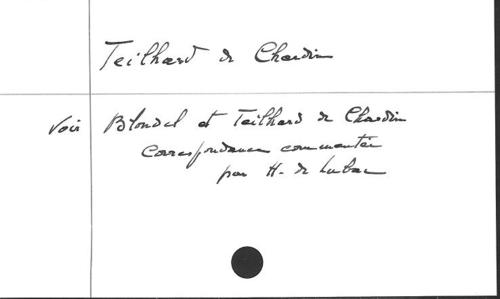 Teilhard de Chardin
Voir Blondel et Teilhard de Chardin
Correspondance commentée
par H. de Lubac